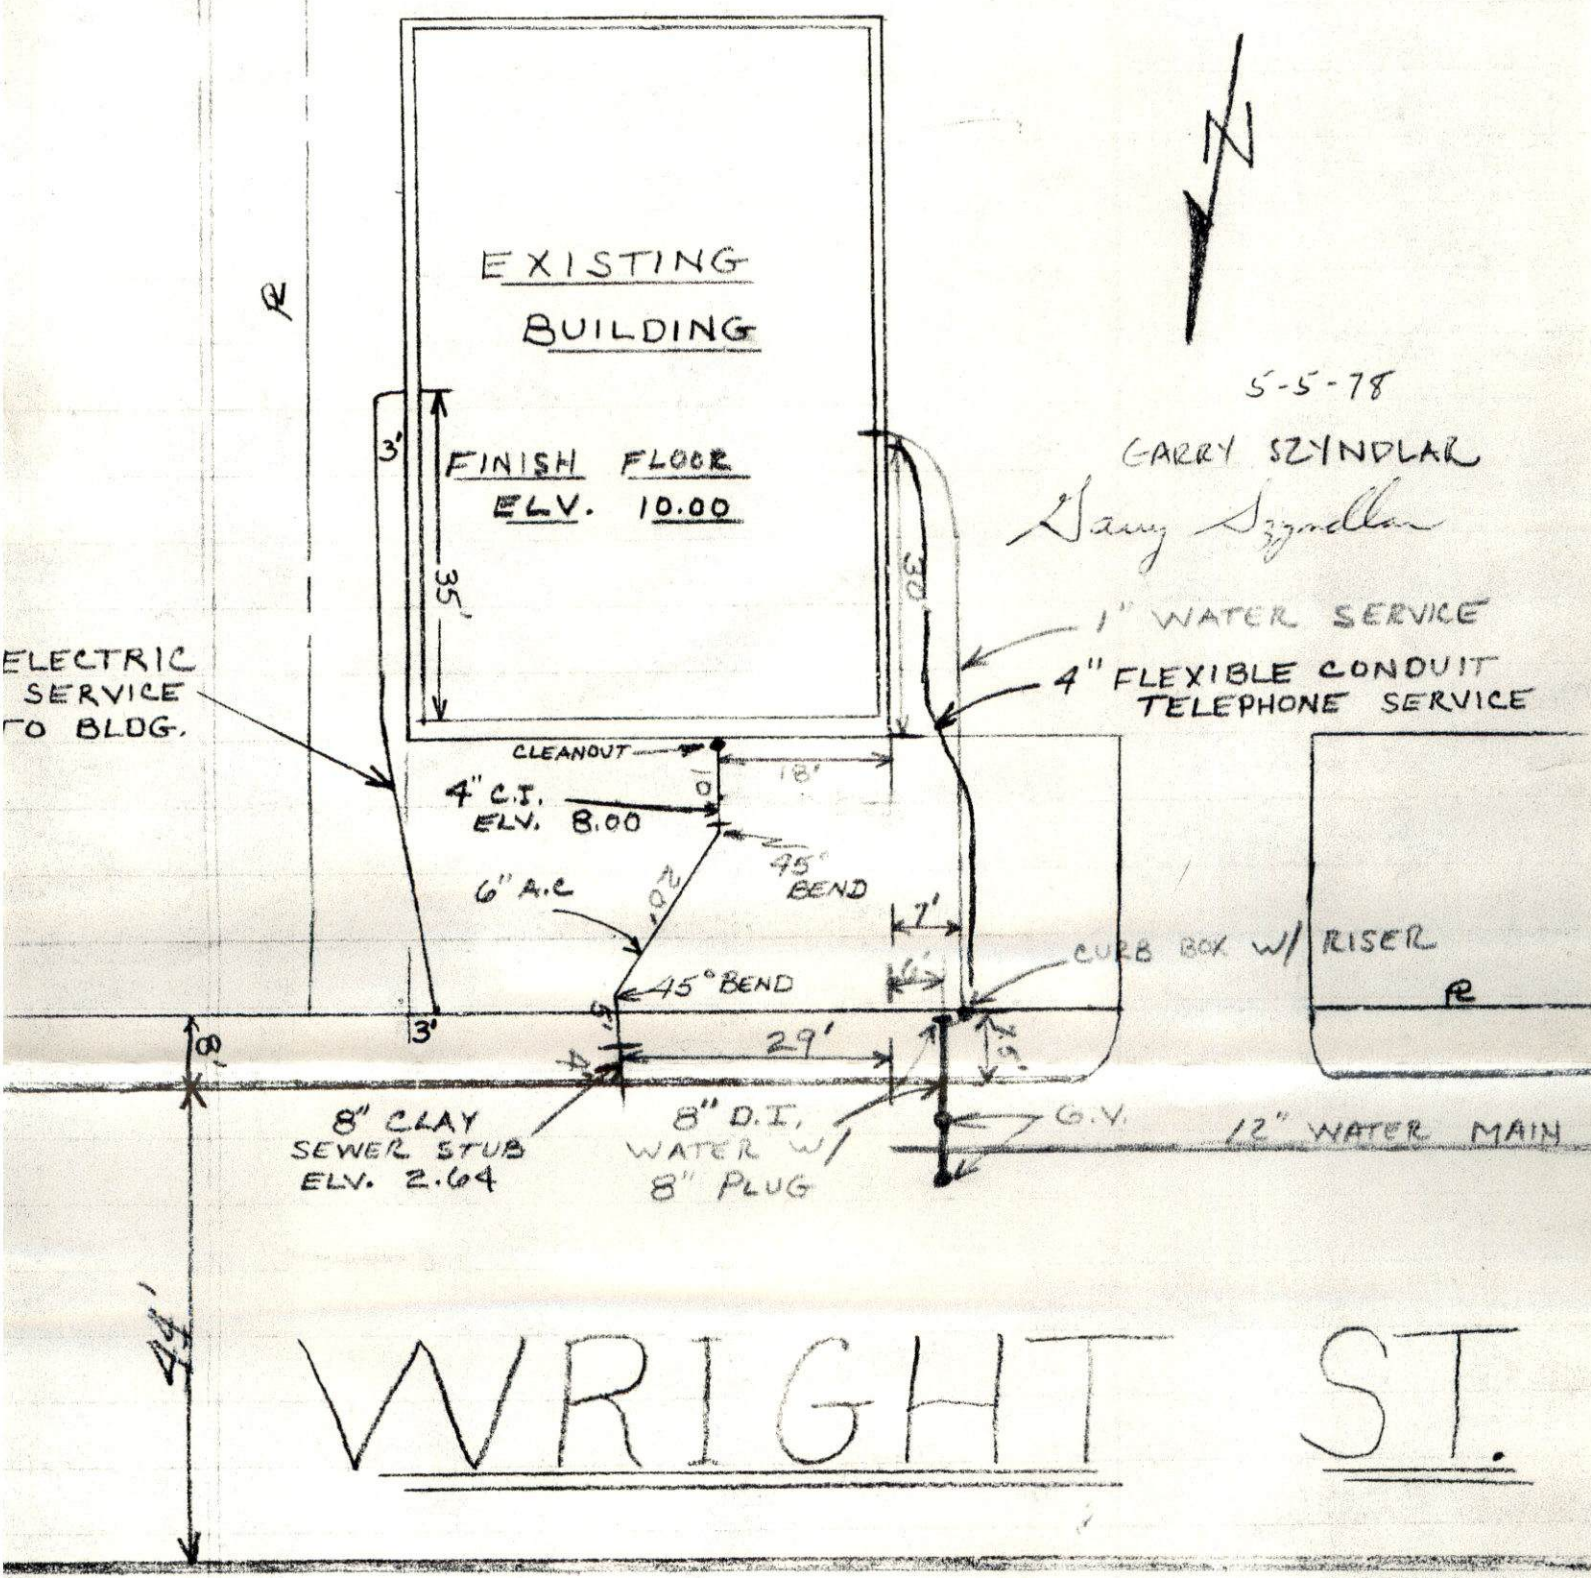 N
EXISTING
BUILDING
5-5-78
GARRY SZYNDLAR
Garry Szyndlar
3'
FINISH FLOOR
ELV. 10.00
35'
30'
1" WATER SERVICE
4" FLEXIBLE CONDUIT
TELEPHONE SERVICE
ELECTRIC
SERVICE
TO BLDG.
CLEANOUT
18'
10'
4" C.I.
ELV. 8.00
45°
BEND
6" A.C
20'
7'
CURB BOX W/ RISER
6'
45° BEND
5'
3'
8'
29'
7.5'
4'
8" CLAY
SEWER STUB
ELV. 2.64
8" D.I.
WATER W/
8" PLUG
G.V.
12" WATER MAIN
44'
WRIGHT ST.